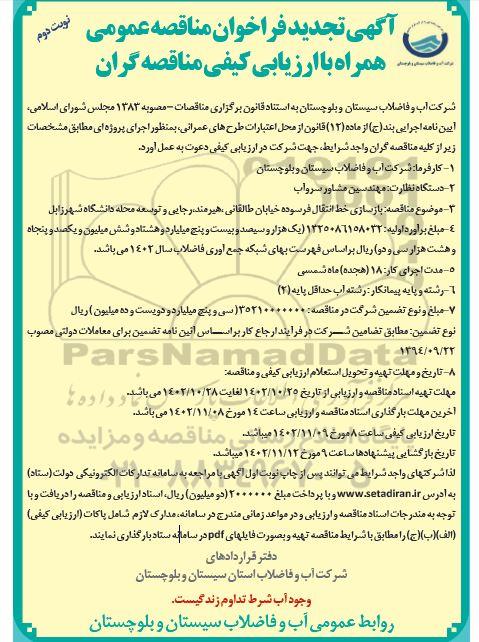 نوبت دوم
آگهی تجدید فراخوان مناقصه عمومی
همراه با ارزیابی کیفی مناقصه گران
شرکت آب و فاضلاب سیستان و بلوچستان
شرکت آب و فاضلاب سیستان و بلوچستان به استناد قانون برگزاری مناقصات – مصوبه ۱۳۸۳ مجلس شورای اسلامی،
آیین نامه اجرایی بند (ج) از ماده (۱۲) قانون از محل اعتبارات طرح های عمرانی، بمنظور اجرای پروژه ای مطابق مشخصات
زیر از کلیه مناقصه گران واجد شرایط، جهت شرکت در ارزیابی کیفی دعوت به عمل آورد.
۱- کارفرما: شرکت آب و فاضلاب سیستان و بلوچستان
۲- دستگاه نظارت: مهندسین مشاور سروآب
۳- موضوع مناقصه: بازسازی خط انتقال فرسوده خیابان طالقانی، هیرمند، رجایی و توسعه محله دانشگاه شهر زابل
۴- مبلغ برآورد اولیه: ۱۳۲۵۰۸۶۱۵۸۰۳۲ (یک هزار و سیصد و بیست و پنج میلیارد و هشتاد و شش میلیون و یکصد و پنجاه
و هشت هزار سی و دو) ریال بر اساس فهرست بهای شبکه جمع آوری فاضلاب سال ۱۴۰۲ می باشد.
۵- مدت اجرای کار: ۱۸ (هجده) ماه شمسی
۶- رشته و پایه پیمانکار: رشته آب حداقل پایه (۲)
۷- مبلغ و نوع تضمین شرگت در مناقصه: ۳۵۲۱۰۰۰۰۰۰۰ (سی و پنج میلیارد و دویست و ده میلیون) ریال
نوع تضمین: مطابق تضامین شرکت در فرآیند ارجاع کار بر اساس آئین نامه تضمین برای معاملات دولتی مصوب
۱۳۹۴/۰۹/۲۲
۸- تاریخ و مهلت تهیه و تحویل استعلام ارزیابی کیفی و مناقصه:
مهلت تهیه اسناد مناقصه و ارزیابی از تاریخ ۱۴۰۲/۱۰/۲۵ لغایت ۱۴۰۲/۱۰/۲۸ می باشد.
آخرین مهلت بارگذاری اسناد مناقصه و ارزیابی ساعت ۱۴ مورخ ۱۴۰۲/۱۱/۰۸ می باشد.
تاریخ ارزیابی کیفی ساعت ۸ مورخ ۱۴۰۲/۱۱/۰۹ میباشد.
تاریخ بازگشایی پیشنهادها ساعت ۹ مورخ ۱۴۰۲/۱۱/۱۲ میباشد.
لذا شرکتهای واجد شرایط می توانند پس از چاپ نوبت اول آگهی با مراجعه به سامانه تدارکات الکترونیکی دولت (ستاد)
به آدرس www.setadiran.ir و با پرداخت مبلغ ۲۰۰۰۰۰۰ (دو میلیون) ریال، اسناد ارزیابی و مناقصه را دریافت و با
توجه به مندرجات اسناد مناقصه و ارزیابی و در مواعد زمانی مندرج در سامانه، مدارک لازم شامل پاکات (ارزیابی کیفی)
(الف)(ب)(ج) را مطابق با شرایط مناقصه تهیه و بصورت فایلهای pdf در سامانه ستاد بارگذاری نمایند.
دفتر قراردادهای
شرکت آب و فاضلاب استان سیستان و بلوچستان
وجود آب شرط تداوم زندگیست.
روابط عمومی آب و فاضلاب سیستان و بلوچستان
ParsNamadData